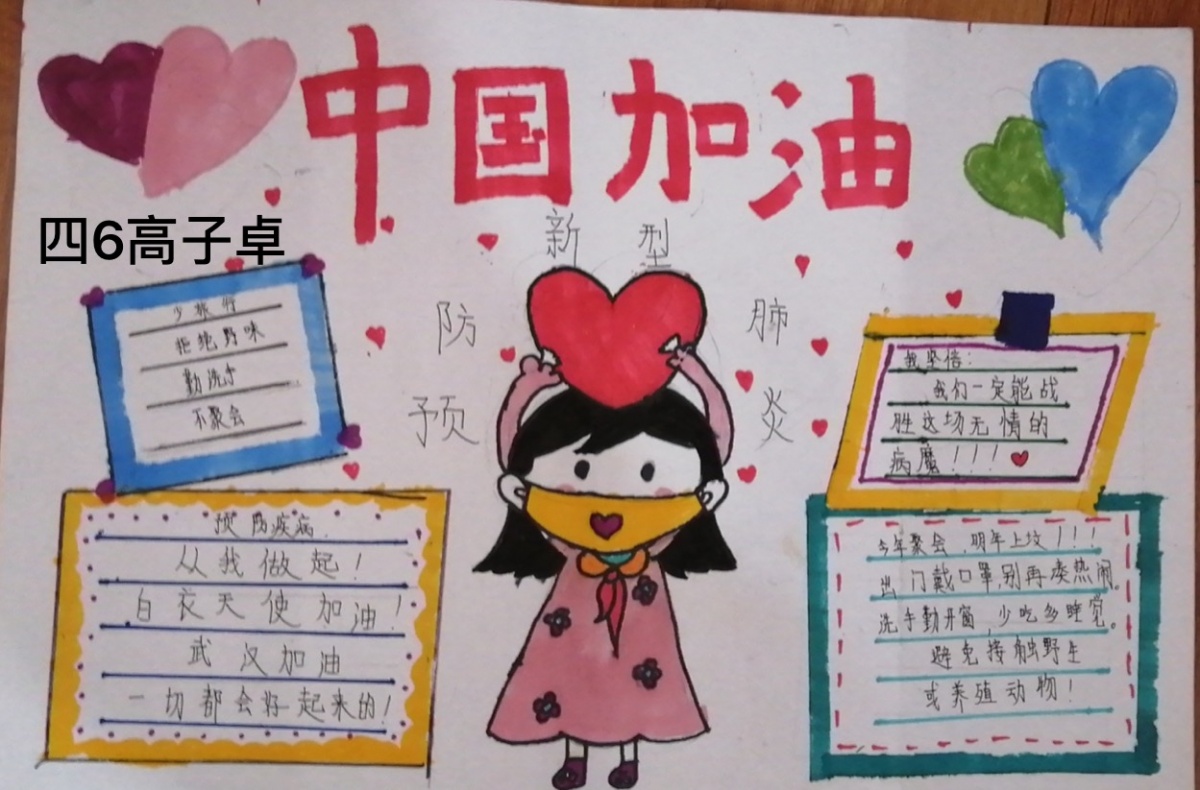 中国加油
四6高子卓
预防新型肺炎
少旅行
拒绝野味
勤洗手
不聚会
我坚信：
我们一定能战
胜这场无情的
病魔！！！
预防疾病
从我做起！
白衣天使加油！
武汉加油
一切都会好起来的！
今年聚会，明年上坟！！！
出门戴口罩别再凑热闹。
洗手勤开窗，少吃多睡觉。
避免接触野生
或养殖动物！